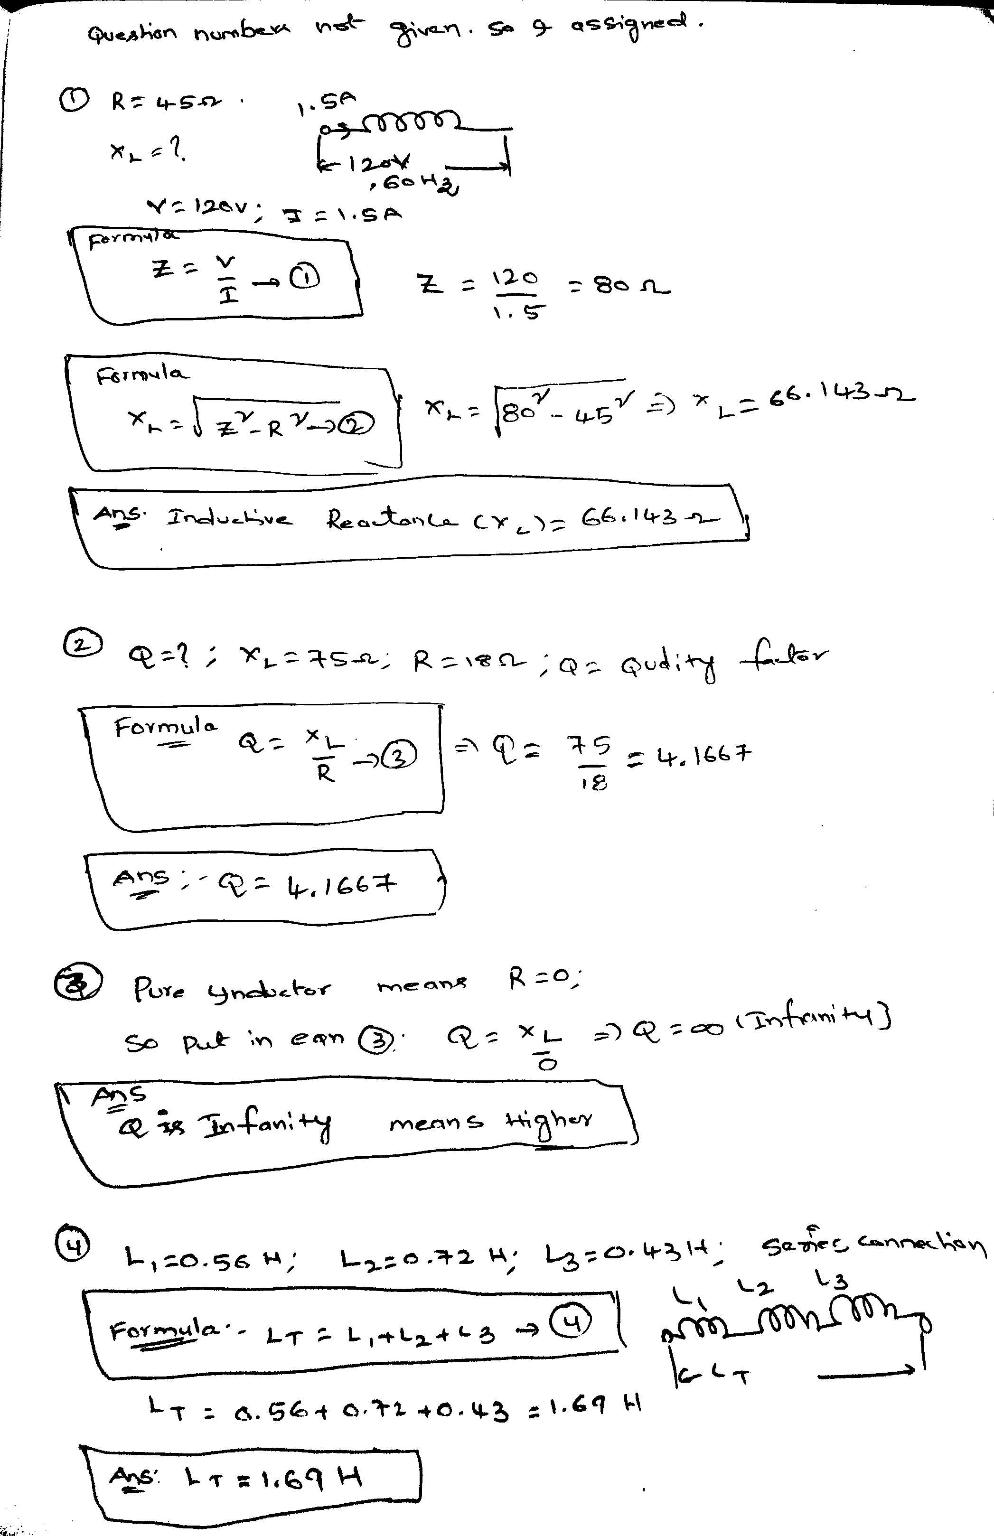 Question numbers not given. so I assigned.
① R = 45Ω . 1.5A
XL = ?
120V
, 60Hz
V = 120V; I = 1.5A
Formula
Z = V/I → ①
Z = 120/1.5 = 80 Ω
Formula
XL = √Z²-R² → ②
XL = √80² - 45² ⇒ XL = 66.143Ω
Ans. Inductive Reactance (XL) = 66.143Ω
② Q = ? ; XL = 75Ω; R = 18Ω ; Q = Qudity factor
Formula Q = XL/R → ③ ⇒ Q = 75/18 = 4.1667
Ans :- Q = 4.1667
③ Pure ynductor means R = 0;
so put in eqn ③: Q = XL/0 ⇒ Q = ∞ (Infinity}
Ans
Q is Infanity means Higher
④ L1 = 0.56 H; L2 = 0.72 H; L3 = 0.43 H; series connection
L1 L2 L3
Formula :- LT = L1 + L2 + L3 → ④
LT
LT = 0.56 + 0.72 + 0.43 = 1.69 H
Ans: LT = 1.69 H